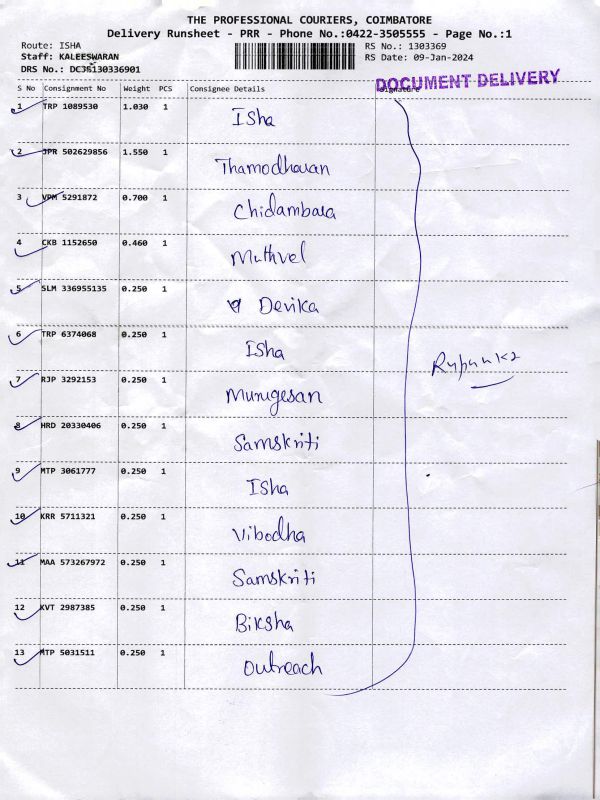 THE PROFESSIONAL COURIERS, COIMBATORE
Delivery Runsheet - PRR - Phone No.:0422-3505555 - Page No.:1
Route: ISHA RS No.: 1303369
Staff: KALEESWARAN RS Date: 09-Jan-2024
DRS No.: 
DOCUMENT DELIVERY
S No Consignment No Weight PCS Consignee Details Signature
1 TRP 1089530 1.030 1 Isha
2 JPR 502629856 1.550 1 Thamodharan
3 VPM 5291872 0.700 1 Chidambara
4 CKB 1152650 0.460 1 Muthvel
5 SLM 336955135 0.250 1 Devika
6 TRP 6374068 0.250 1 Isha
7 RJP 3292153 0.250 1 Murugesan
8 HRD 20330406 0.250 1 Samskriti
9 MTP 3061777 0.250 1 Isha
10 KRR 5711321 0.250 1 Vibodha
11 MAA 573267972 0.250 1 Samskriti
12 KVT 2987385 0.250 1 Biksha
13 MTP 5031511 0.250 1 Outreach